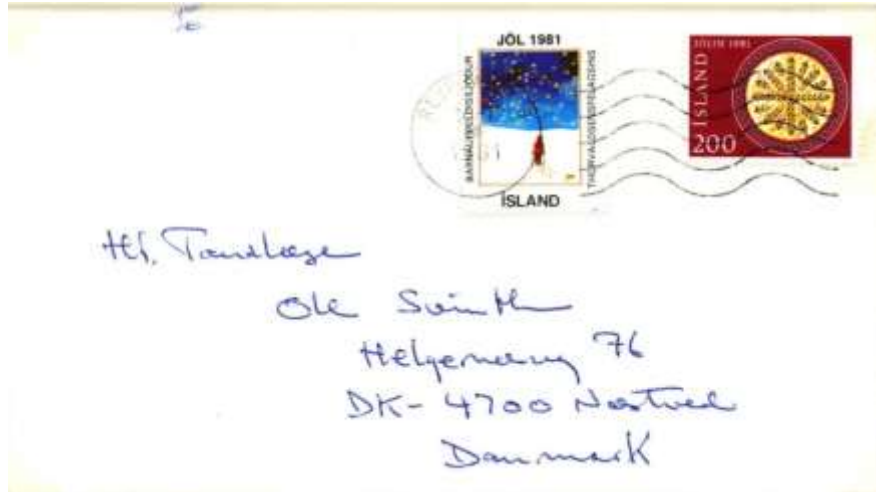 JÓL 1981
BARNAUPPELDISSJÓÐUR
THORVALDSENSFÉLAGSINS
ÍSLAND
JÓLIN 1981
ÍSLAND
200
Hr. Tandlæge
Ole Svinth
Helgenæsvej 76
DK-4700 Næstved
Danmark